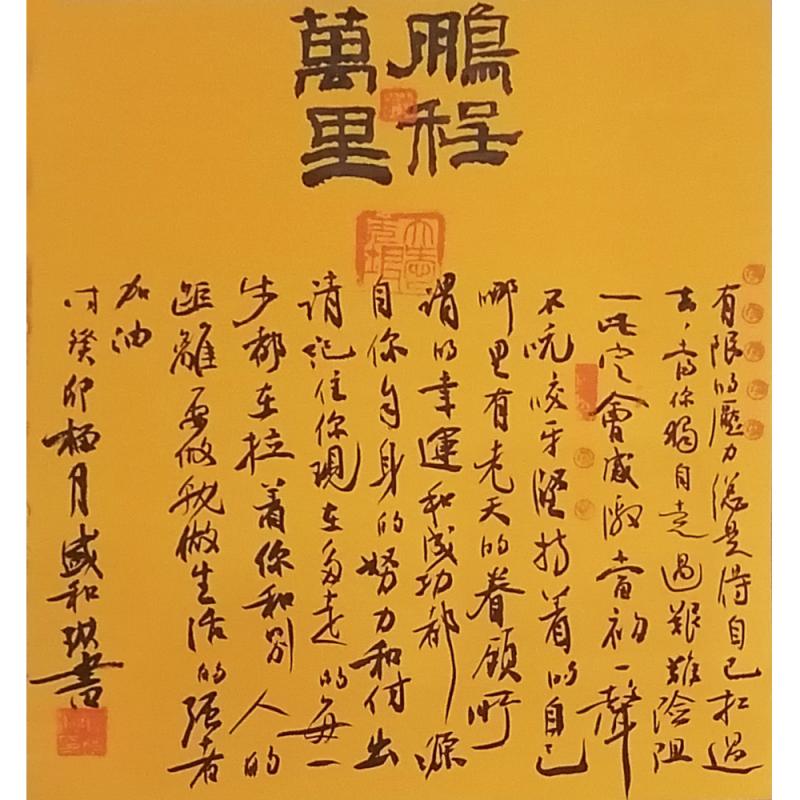 鵬程
萬里
有限的壓力總是得自己扛過
去，當你獨自走過艱難險阻
一定會感激當初一聲
不吭咬牙堅持着的自己
哪里有老天的眷顧所
謂的幸運和成功都源
自你自身的努力和付出
請記住你現在多走的每一
步都在拉着你和别人的
距離要做就做生活的强者
加油
时癸卯月盛和琪書